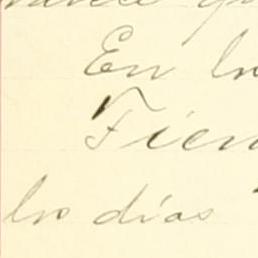 En lo
Tien
los días